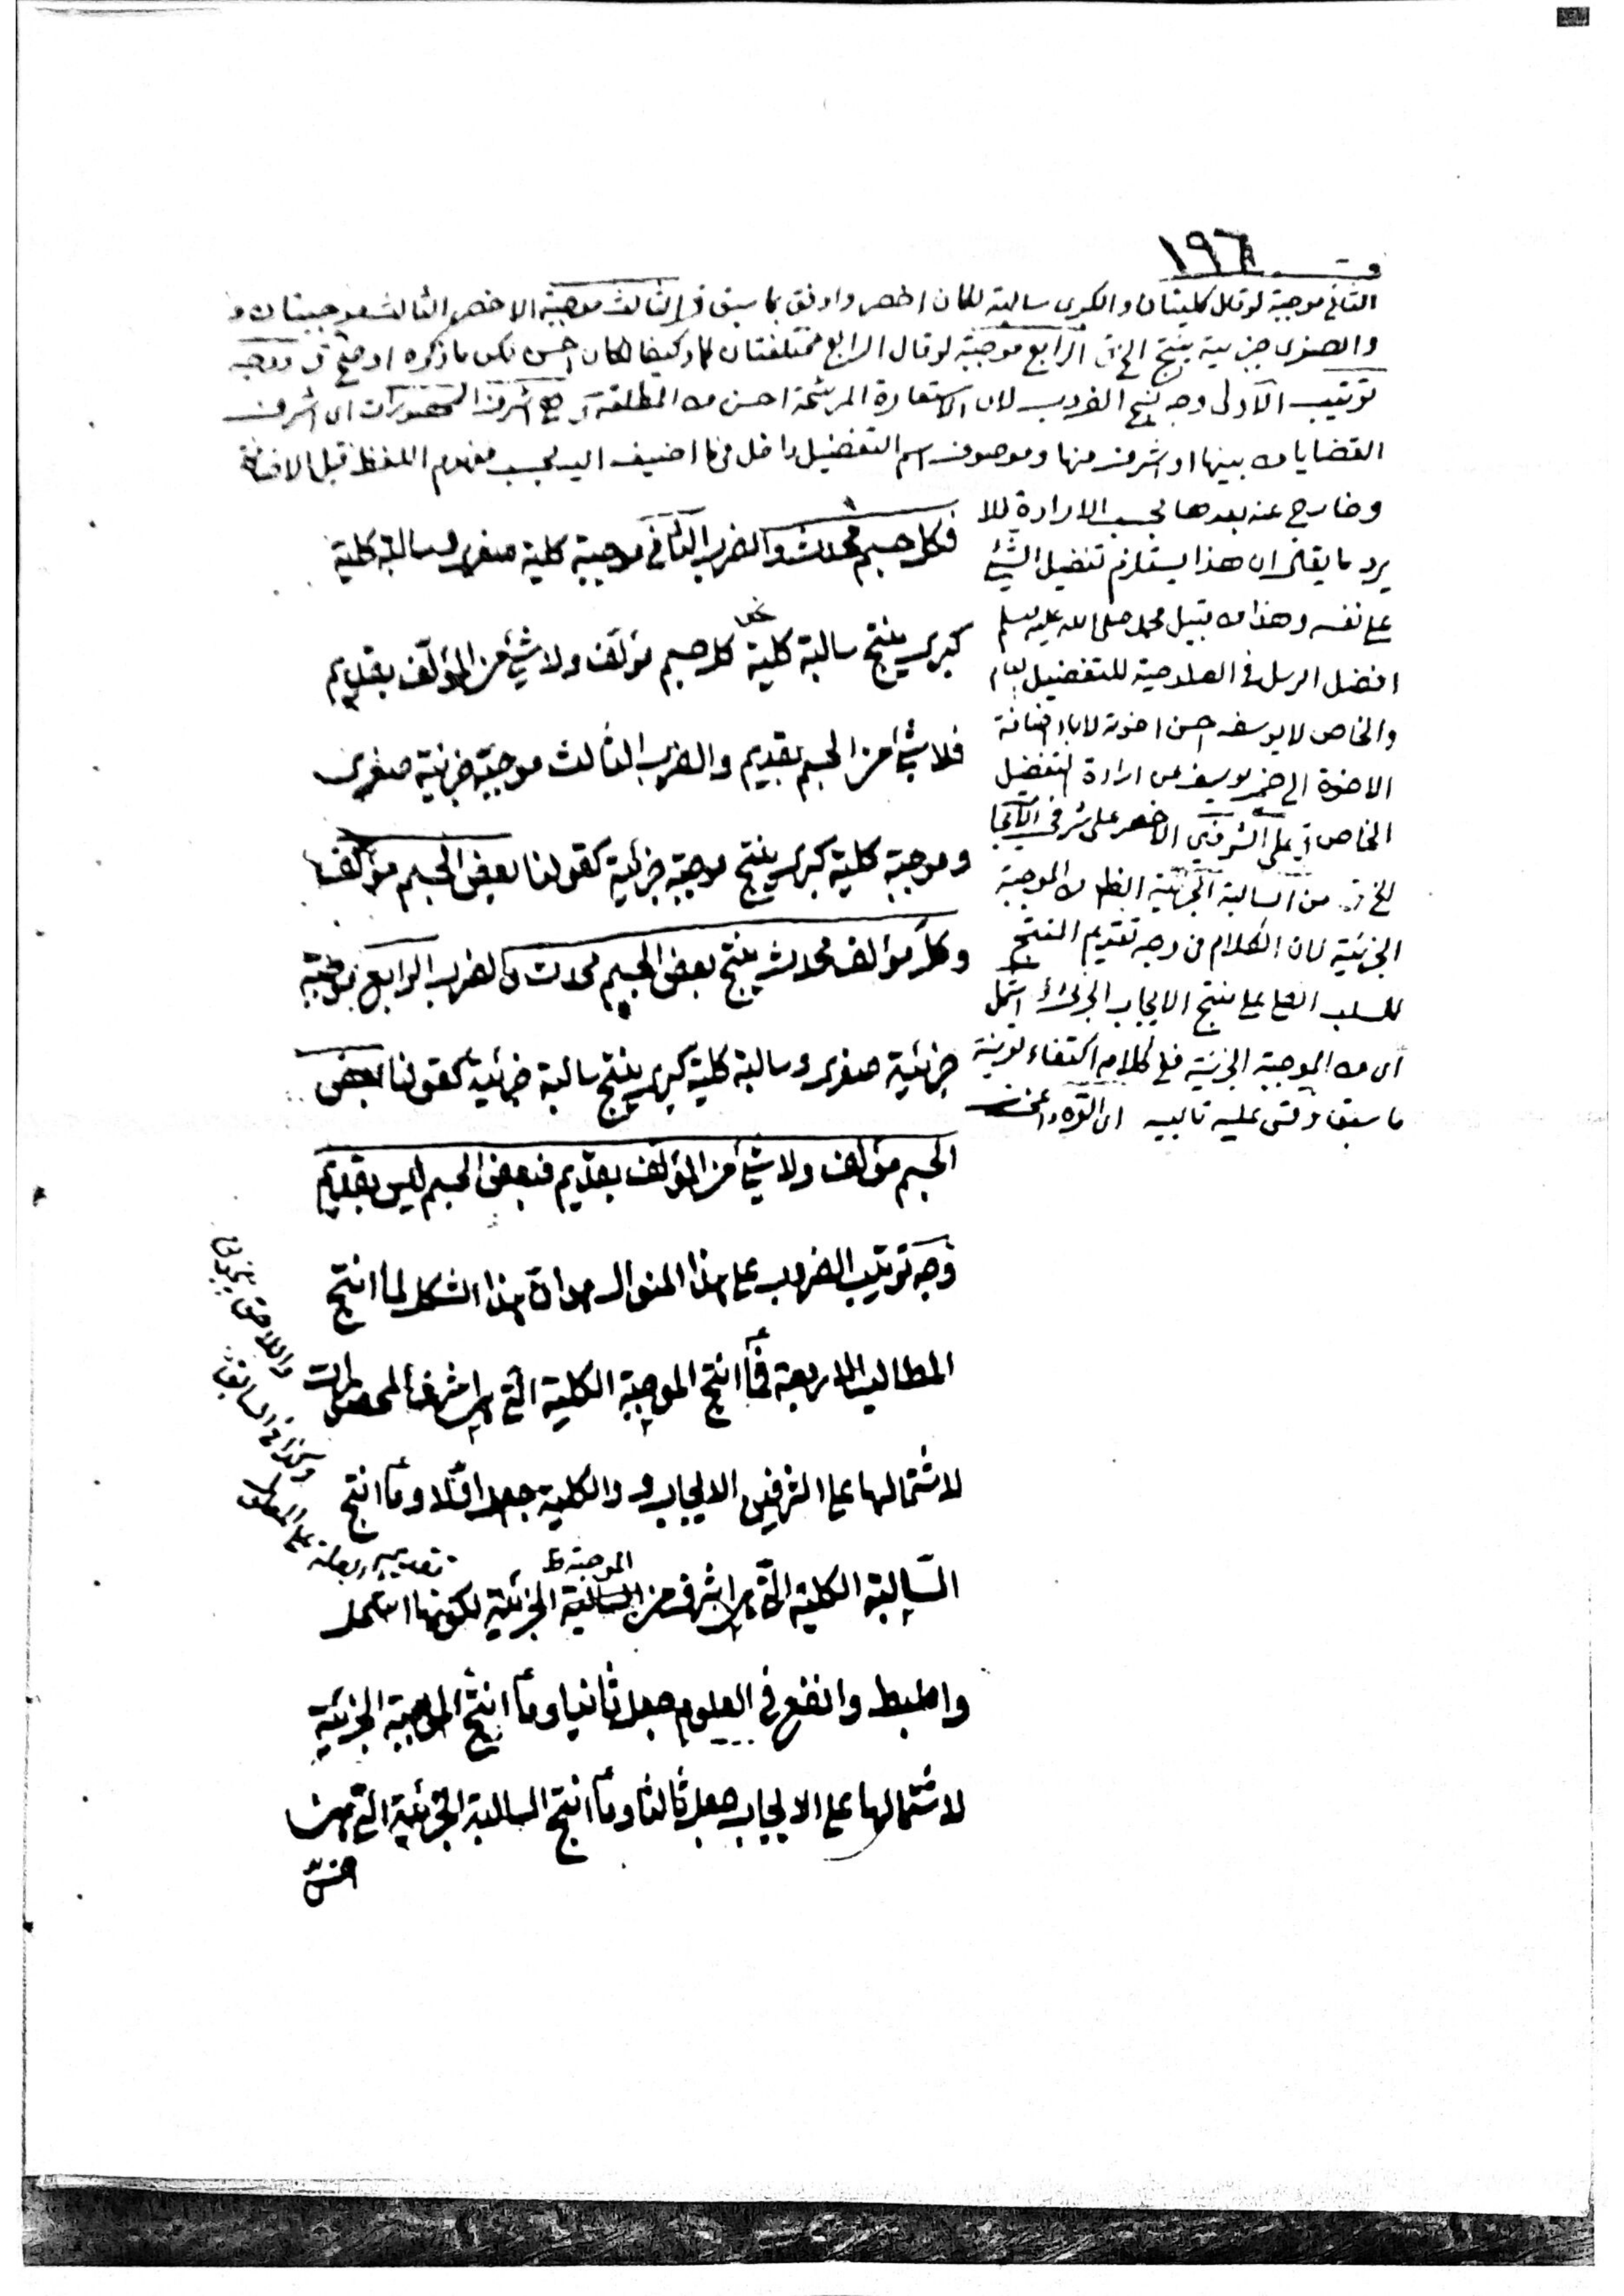 ١٩٦
الثاني موجبة لو قال كليتان والكبرى سالبة لكان اخصر واوفق بما سبق في الثالث موجبة الاخصر الثالث موجبتان و
والصغرى جزئية ينتج الخ الرابع موجبة لو قال الرابع مختلفتان كما وكيفا لكان احسن لكن ما ذكره اوضح ووجه
ترتيب الاولى وجه الضروب لان الاستعارة المرشحة احسن من المطلقة اشرف المحصورات اى اشرف
القضايا من بينها او اشرف منها وموصوف اسم التفضيل داخل فيما اضيف اليه بحسب مفهوم اللفظ قبل الاضافة
وخارج عنه بعدها بحسب الارادة لئلا
يرد ما يقال ان هذا يستلزم تفضيل الشئ
على نفسه وهذا من قبيل محمد صلى الله عليه وسلم
افضل الرسل في الصلاحية للتفضيل
والخاص لا يوسف احسن اخوته لاباء اضافة
الاخوة الى ضمير يوسف عن ارادة التفضيل
الخاص على الشرفين الاخصر على شرفي
الخ من السالبة الجزئية الظ من الموجبة
الجزئية لان الكلام في وجه تقديم المنتج
للسلب الكلى على منتج الايجاب الجزئى اشمل
اى من الموجبة الجزئية فى كلامه اكتفاء بقرينة
ما سبق وقس عليه تالييه
فكل جسم محدث والضرب الثاني موجبة كلية صغرى وسالبة كلية
كبرى ينتج سالبة كلية نحو كل جسم مؤلف ولا شئ من المؤلف بقديم
فلا شئ من الجسم بقديم والضرب الثالث موجبة جزئية صغرى
وموجبة كلية كبرى ينتج موجبة جزئية كقولنا بعض الجسم مؤلف
وكل مؤلف محدث ينتج بعض الجسم محدث والضرب الرابع موجبة
جزئية صغرى وسالبة كلية كبرى ينتج سالبة جزئية كقولنا بعض
الجسم مؤلف ولا شئ من المؤلف بقديم فبعض الجسم ليس بقديم
وجه ترتيب الضروب على هذا المنوال هو ان هذا الشكل لما انتج
المطالب الاربعة فما انتج الموجبة الكلية التى هى اشرف المحصورات
لاشتمالها على الشرفين الايجاب والكلية جعل اولا وما انتج
السالبة الكلية التى هى اشرف من السالبة الموجبة ظ الجزئية لكونها اشمل
واضبط وانفع فى العلوم جعل ثانيا وما انتج الموجبة الجزئية
لاشتمالها على الايجاب جعل ثالثا وما انتج السالبة الجزئية التى هى
اخس